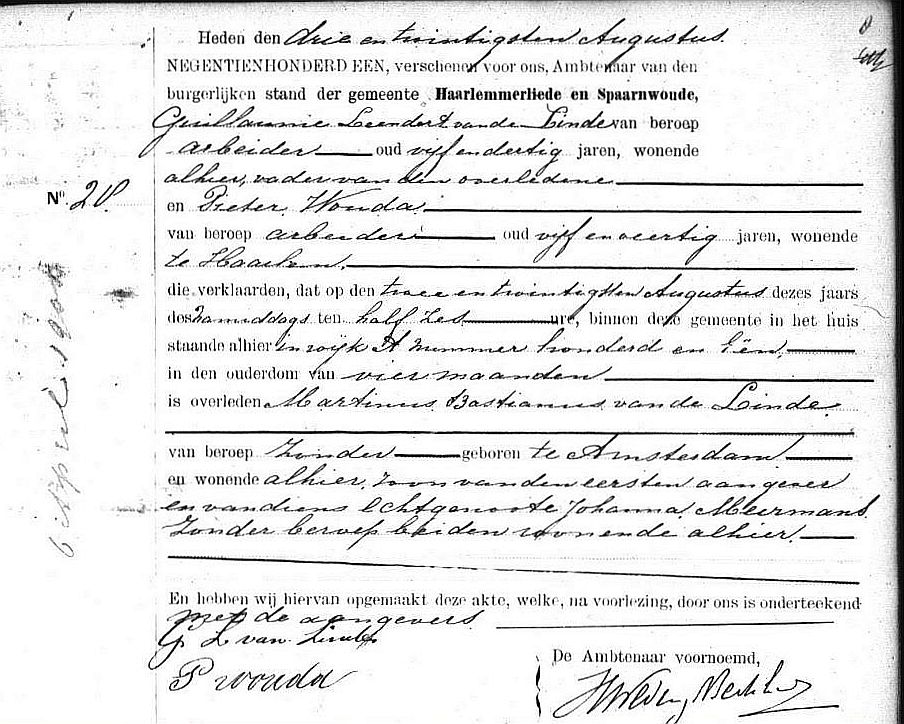 Heden den drie en twintigsten Augustus
NEGENTIENHONDERD EEN, verschenen voor ons, Ambtenaar van den
burgerlijken stand der gemeente Haarlemmerliede en Spaarnwoude,
Guillaumie Leendert van de Linde van beroep
arbeider oud vijf en dertig jaren, wonende
alhier, vader van den overledene
No. 28.
en Pieter Wouda
van beroep arbeider oud vijf en veertig jaren, wonende
te Haarlem,
die verklaarden, dat op den twee en twintigsten Augustus dezes jaars
des namiddags ten half zes ure, binnen deze gemeente in het huis
staande alhier in wijk A nummer honderd en Eén,
in den ouderdom van vier maanden
is overleden Martinus Bastianus van de Linde
van beroep zonder geboren te Amsterdam
en wonende alhier, zoon van den eersten aangever
en van diens Echtgenoote Johanna Meermans
zonder beroep beiden wonende alhier.
6 April 1900
En hebben wij hiervan opgemaakt deze akte, welke, na voorlezing, door ons is onderteekend
met de aangevers.
G L van Linde
P wouda
De Ambtenaar voornoemd,